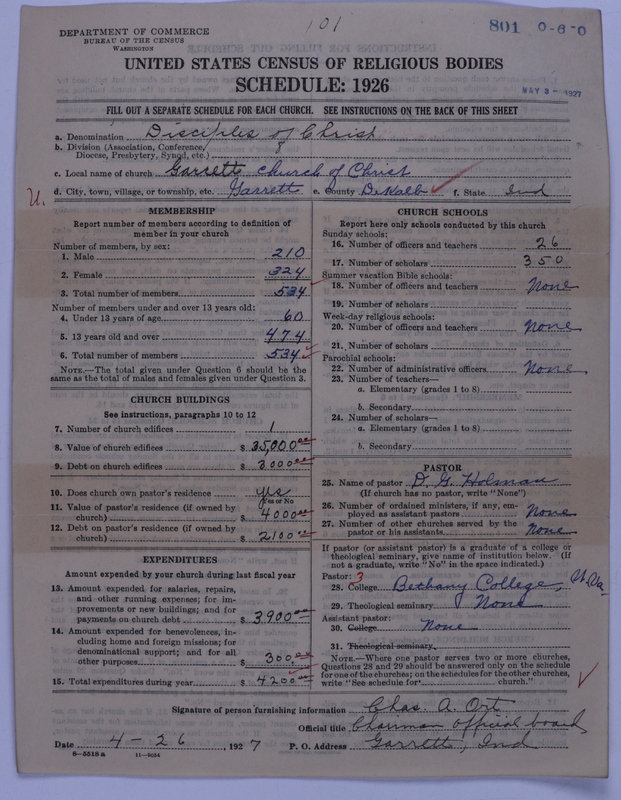 101
801 0-6-0
DEPARTMENT OF COMMERCE
BUREAU OF THE CENSUS
WASHINGTON
UNITED STATES CENSUS OF RELIGIOUS BODIES
SCHEDULE: 1926
MAY 3 - 1927
FILL OUT A SEPARATE SCHEDULE FOR EACH CHURCH. SEE INSTRUCTIONS ON THE BACK OF THIS SHEET
a. Denomination Disciples of Christ
b. Division (Association, Conference, Diocese, Presbytery, Synod, etc.) 8
c. Local name of church Garrett Church of Christ
d. City, town, village, or township, etc. Garrett e. County DeKalb f. State Ind
U.
MEMBERSHIP
Report number of members according to definition of member in your church
Number of members, by sex:
1. Male 210
2. Female 324
3. Total number of members 534
Number of members under and over 13 years old:
4. Under 13 years of age 60
5. 13 years old and over 474
6. Total number of members 534
NOTE.—The total given under Question 6 should be the same as the total of males and females given under Question 3.
CHURCH BUILDINGS
See instructions, paragraphs 10 to 12
7. Number of church edifices 1
8. Value of church edifices $ 35,000.00
9. Debt on church edifices $ 3000.00
10. Does church own pastor's residence yes
Yes or No
11. Value of pastor's residence (if owned by church) $ 4000.00
12. Debt on pastor's residence (if owned by church) $ 2100.00
EXPENDITURES
Amount expended by your church during last fiscal year
13. Amount expended for salaries, repairs, and other running expenses; for improvements or new buildings; and for payments on church debt $ 3900.00
14. Amount expended for benevolences, including home and foreign missions; for denominational support; and for all other purposes $ 300.00
15. Total expenditures during year $ 4200.00
CHURCH SCHOOLS
Report here only schools conducted by this church
Sunday schools:
16. Number of officers and teachers 26
17. Number of scholars 350
Summer vacation Bible schools:
18. Number of officers and teachers None
19. Number of scholars
Week-day religious schools:
20. Number of officers and teachers None
21. Number of scholars
Parochial schools:
22. Number of administrative officers None
23. Number of teachers—
a. Elementary (grades 1 to 8)
b. Secondary
24. Number of scholars—
a. Elementary (grades 1 to 8)
b. Secondary
PASTOR
25. Name of pastor D. G. Holman
(If church has no pastor, write "None")
26. Number of ordained ministers, if any, employed as assistant pastors None
27. Number of other churches served by the pastor or his assistants None
If pastor (or assistant pastor) is a graduate of a college or theological seminary, give name of institution below. (If not a graduate, write "No" in the space indicated.)
Pastor: 3
28. College Bethany College, W.Va.
29. Theological seminary None
Assistant pastor:
30. College None
31. Theological seminary
NOTE.—Where one pastor serves two or more churches, Questions 28 and 29 should be answered only on the schedule for one of the churches; on the schedules for the other churches, write "See schedule for church."
Signature of person furnishing information Chas. A. Ort
Official title Chairman official board
Date 4-26, 1927 P. O. Address Garrett, Ind
8-5518 a 11-9054